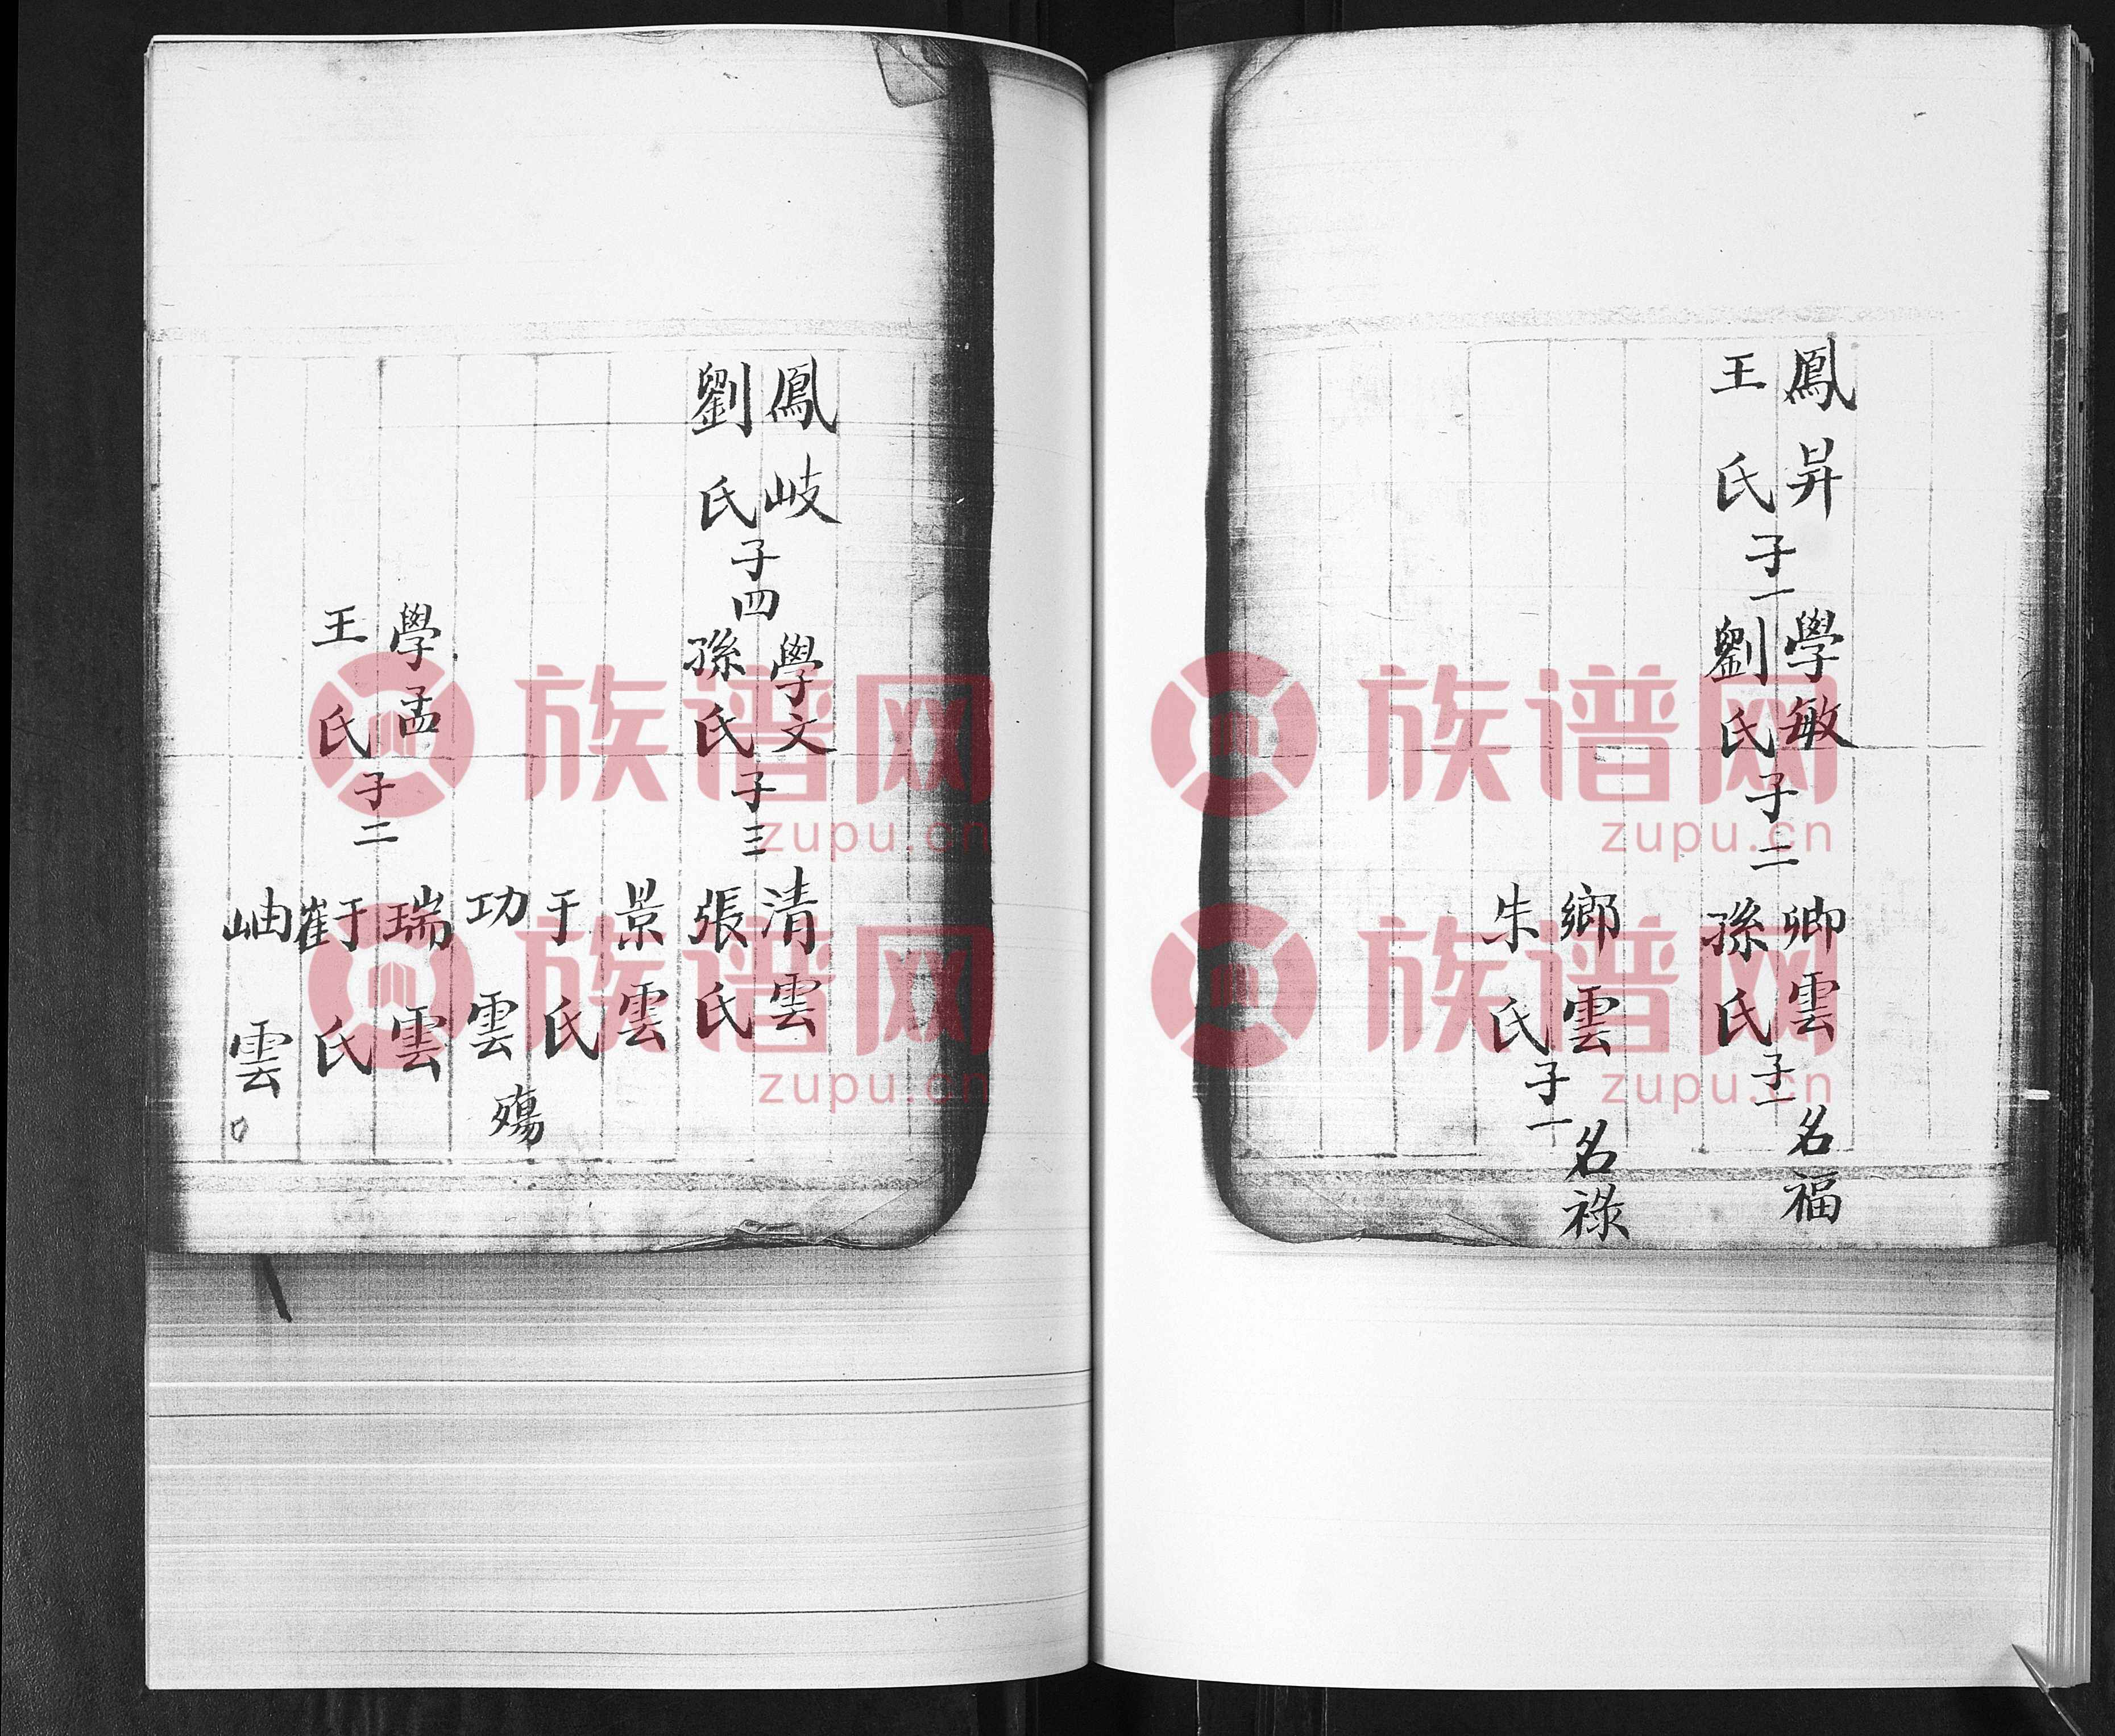 鳳昇
王氏
子一
學敏
劉氏
子二
卿雲
孫氏
子一
名福
鄉雲
朱氏
子一
名祿
鳳岐
劉氏
子四
學文
孫氏
子三
清雲
張氏
景雲
于氏
功雲
殤
學孟
王氏
子二
瑞雲
于
崔氏
岫雲
族谱网
zupu.cn
族谱网
zupu.cn
族谱网
zupu.cn
族谱网
zupu.cn